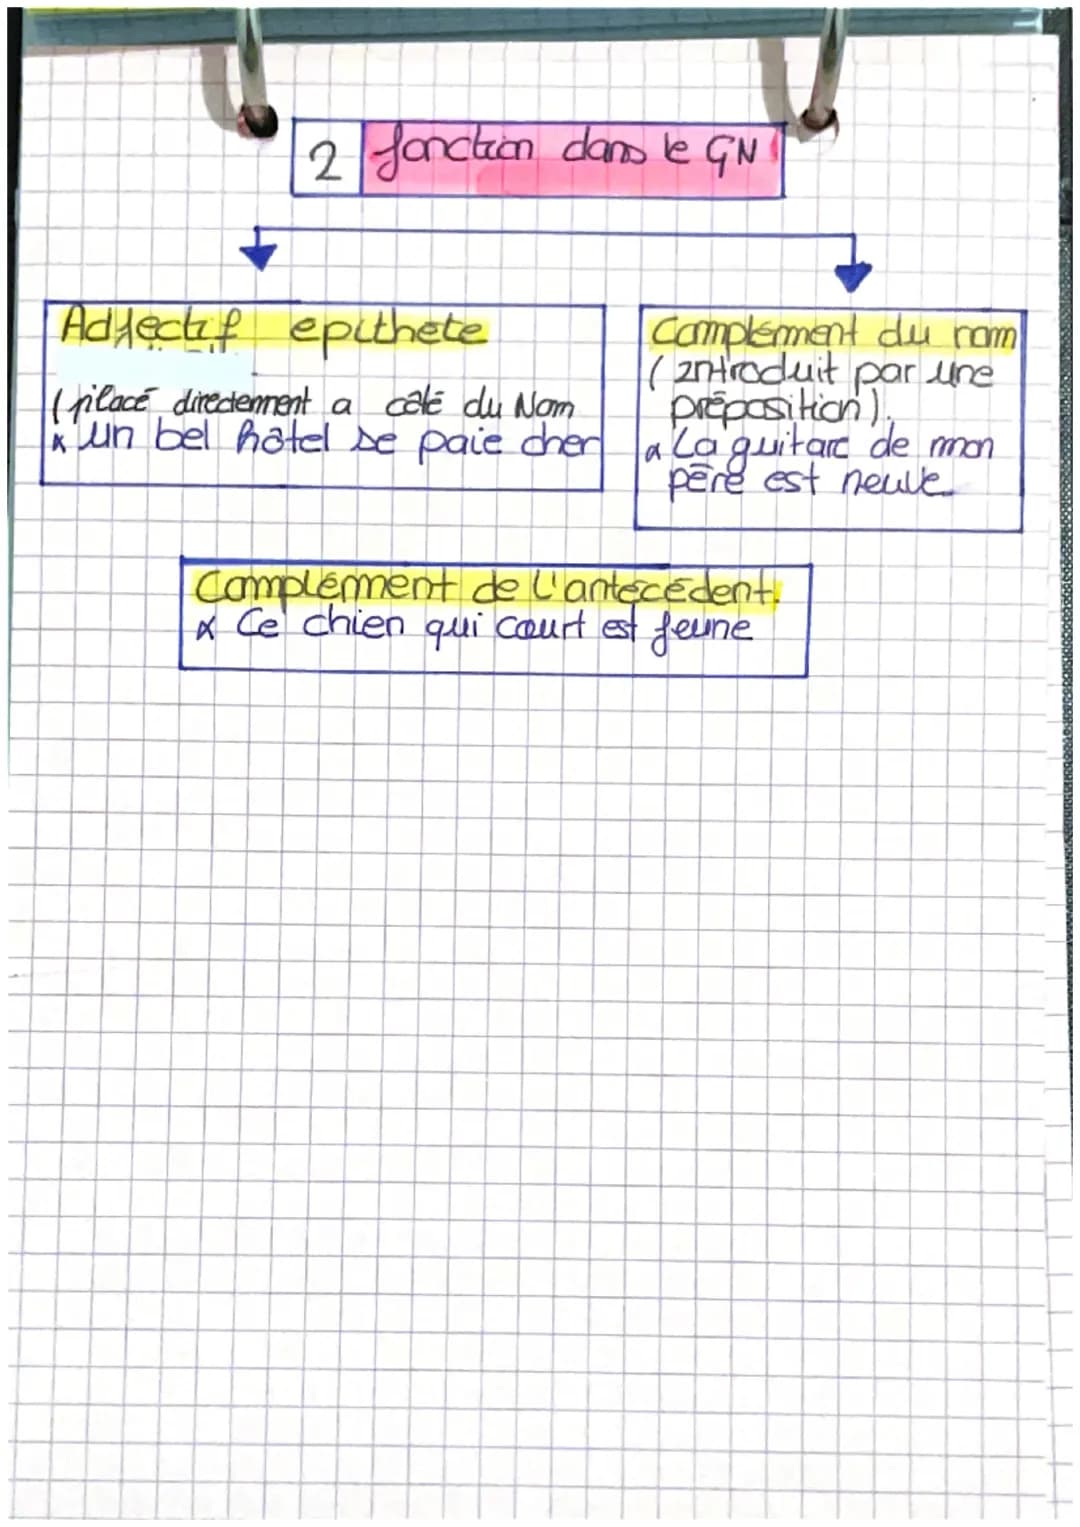 2 fonction dans le GN
Adjectif epithete
(placé directement a côté du Nom
x un bel hôtel se paie cher
Complément du nom
(introduit par une
préposition).
x La guitare de mon
père est neuve
Complément de l'antécédent.
x Ce chien qui court est jeune